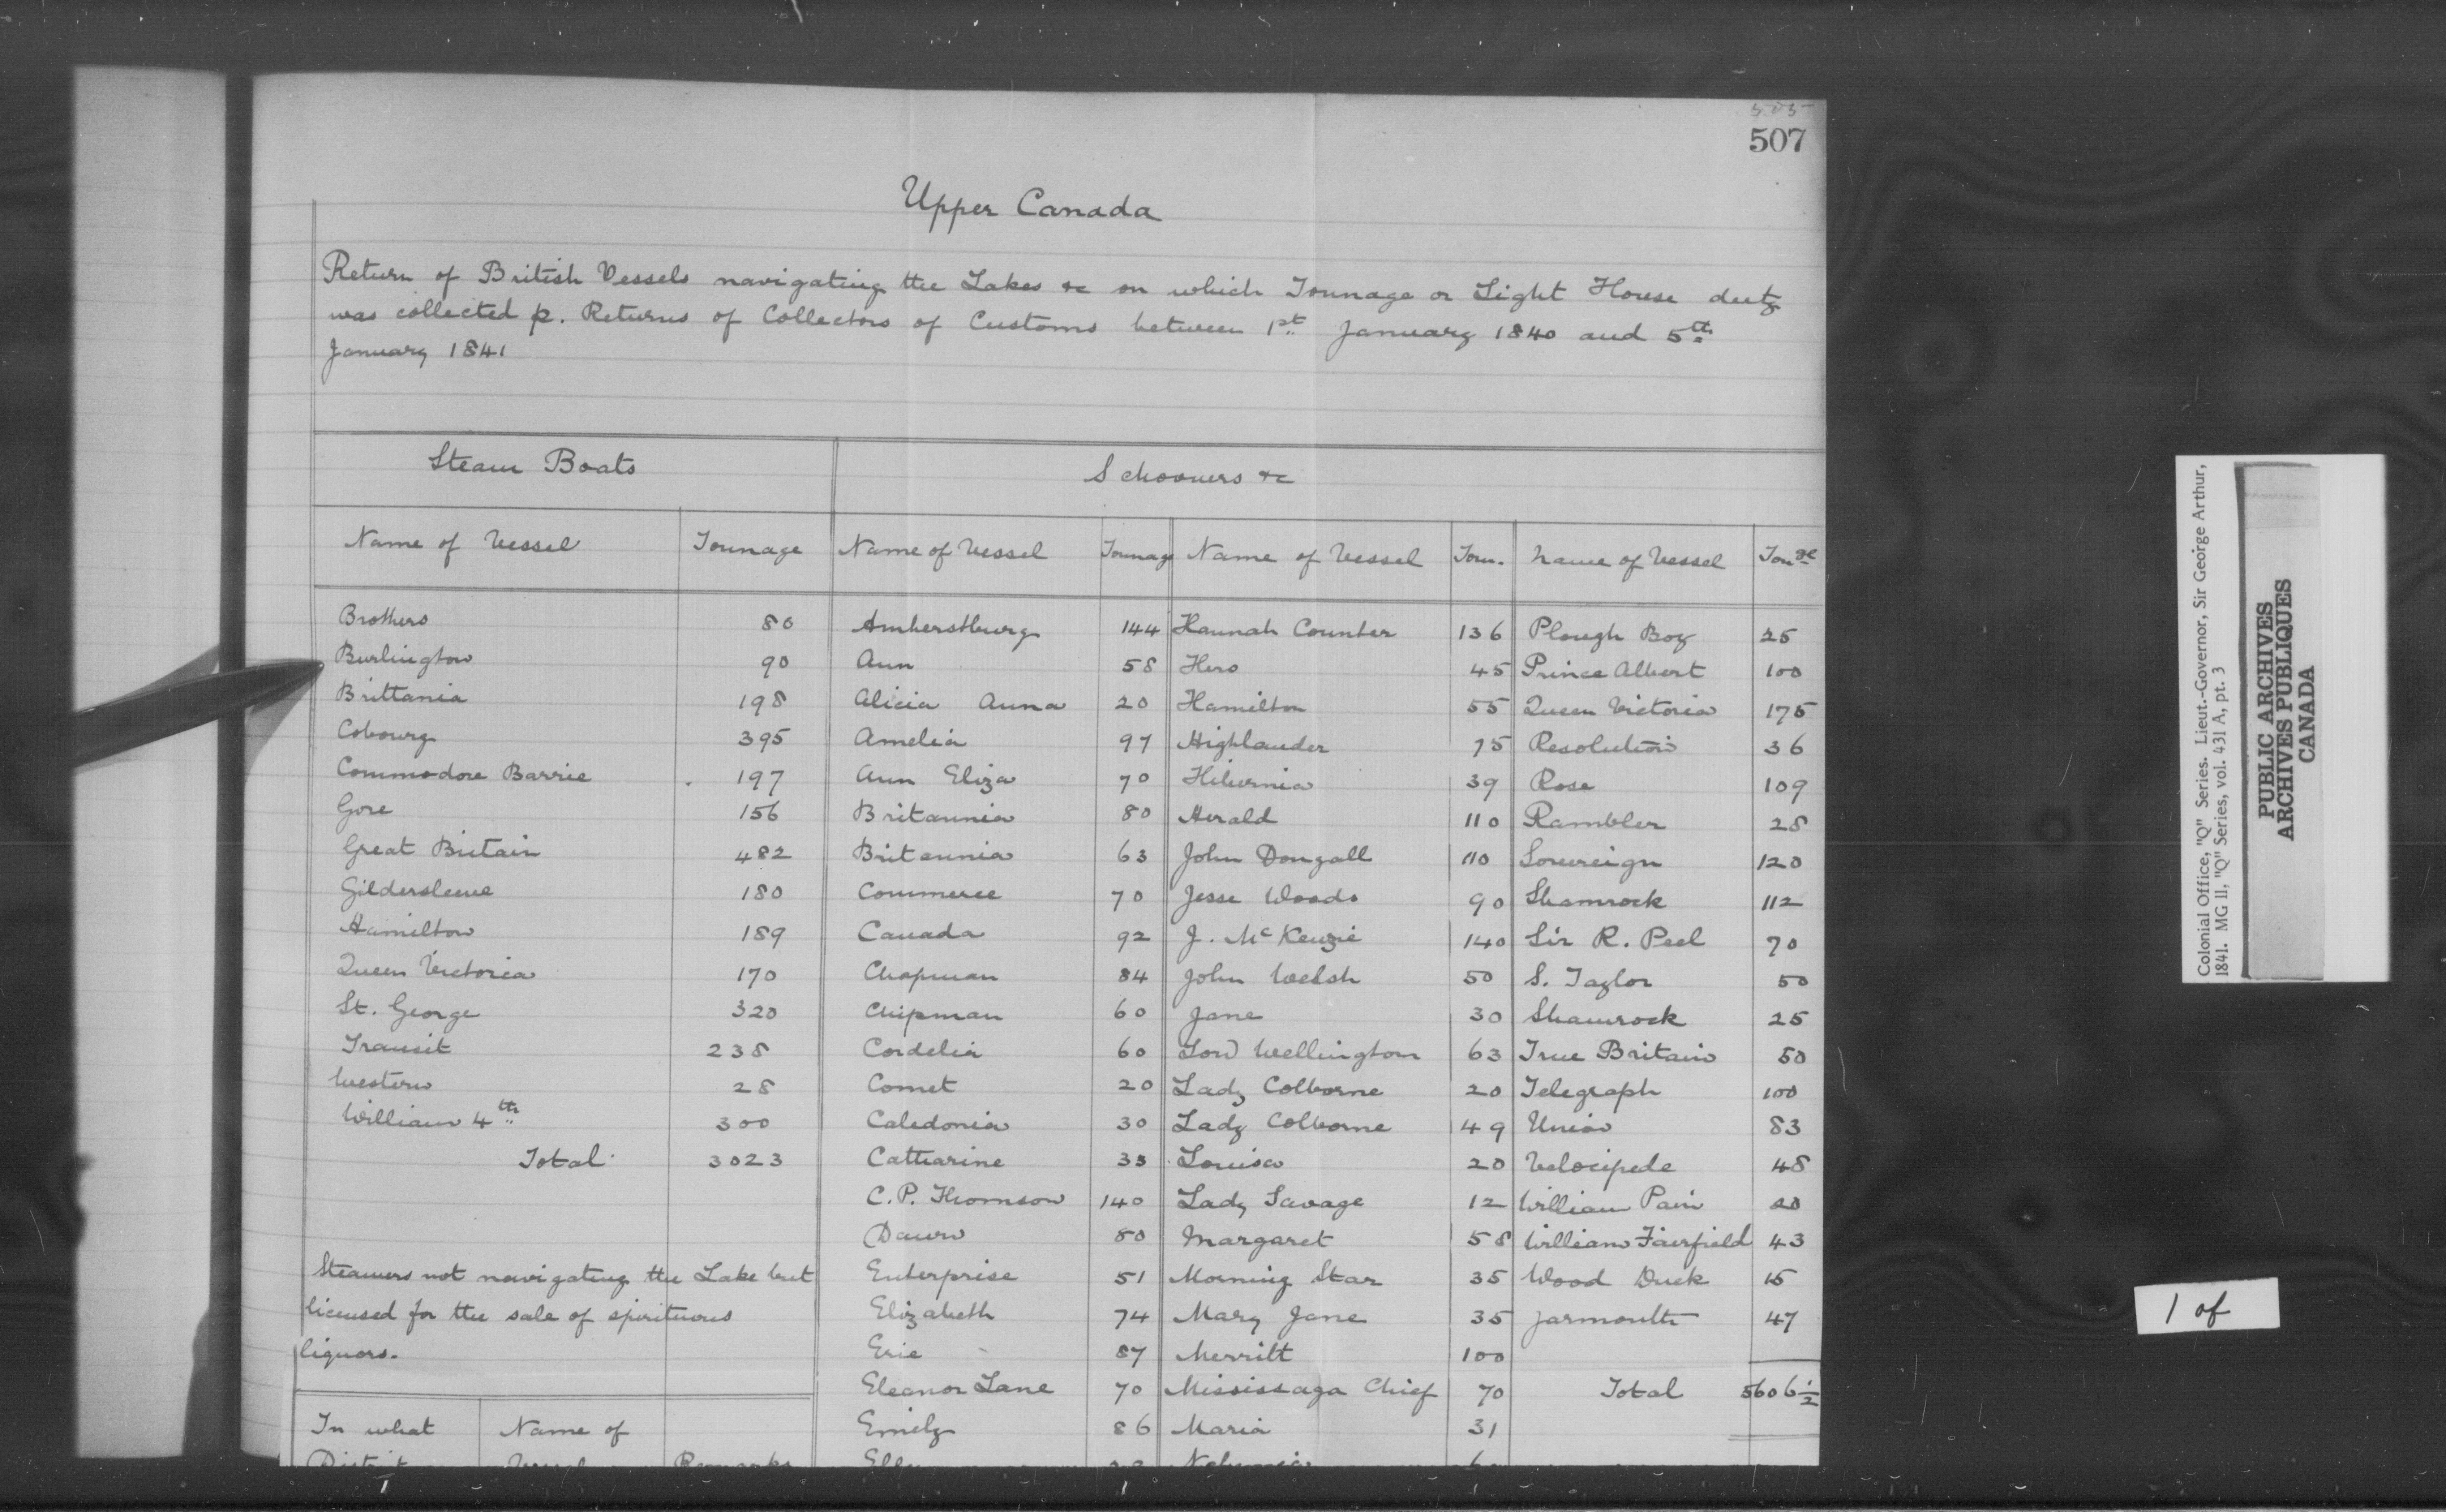 505
507
Upper Canada
Return of British Vessels navigating the Lakes &c on which Tonnage or Light House duty
was collected p. Returns of Collectors of Customs between 1st January 1840 and 5th
January 1841
Steam Boats
Schooners &c
Name of Vessel Tonnage Name of Vessel Tonnage Name of Vessel Tonn. Name of Vessel Tonge
Brothers 80 Amherstburg 144 Hannah Counter 136 Plough Boy 25
Burlington 90 Ann 58 Hero 45 Prince Albert 100
Brittania 198 Alicia Anna 20 Hamilton 55 Queen Victoria 175
Cobourg 395 Amelia 97 Highlander 75 Resolution 36
Commodore Barrie 197 Ann Eliza 70 Hibernia 39 Rose 109
Gore 156 Britannia 80 Herald 110 Rambler 28
Great Britain 482 Britannia 63 John Dougall 110 Sovereign 120
Gildersleeve 180 Commerce 70 Jesse Woods 90 Shamrock 112
Hamilton 189 Canada 92 J. McKenzie 140 Sir R. Peel 70
Queen Victoria 170 Chapman 84 John Welsh 50 S. Taylor 50
St. George 320 Chipman 60 Jane 30 Shamrock 25
Transit 238 Cordelia 60 Lord Wellington 63 True Britain 50
Western 28 Comet 20 Lady Colborne 20 Telegraph 100
William 4th 300 Caledonia 30 Lady Colborne 49 Union 83
Total 3023 Catharine 33 Louisa 20 Velocipede 48
C. P. Thomson 140 Lady Savage 12 William Pain 20
Dawn 80 Margaret 58 William Fairfield 43
Steamers not navigating the Lake but Enterprise 51 Morning Star 35 Wood Duck 15
licensed for the sale of spirituous Elizabeth 74 Mary Jane 35 Yarmouth 47
liquors. Erie 87 Merritt 100
Eleanor Lane 70 Mississaga Chief 70 Total 5606 1/2
In what Name of Emily 86 Maria 31
District Vessel Remarks
Colonial Office, "Q" Series. Lieut.-Governor, Sir George Arthur,
1841. MG 11, "Q" Series, vol. 431 A, pt. 3
PUBLIC ARCHIVES
ARCHIVES PUBLIQUES
CANADA
1 of